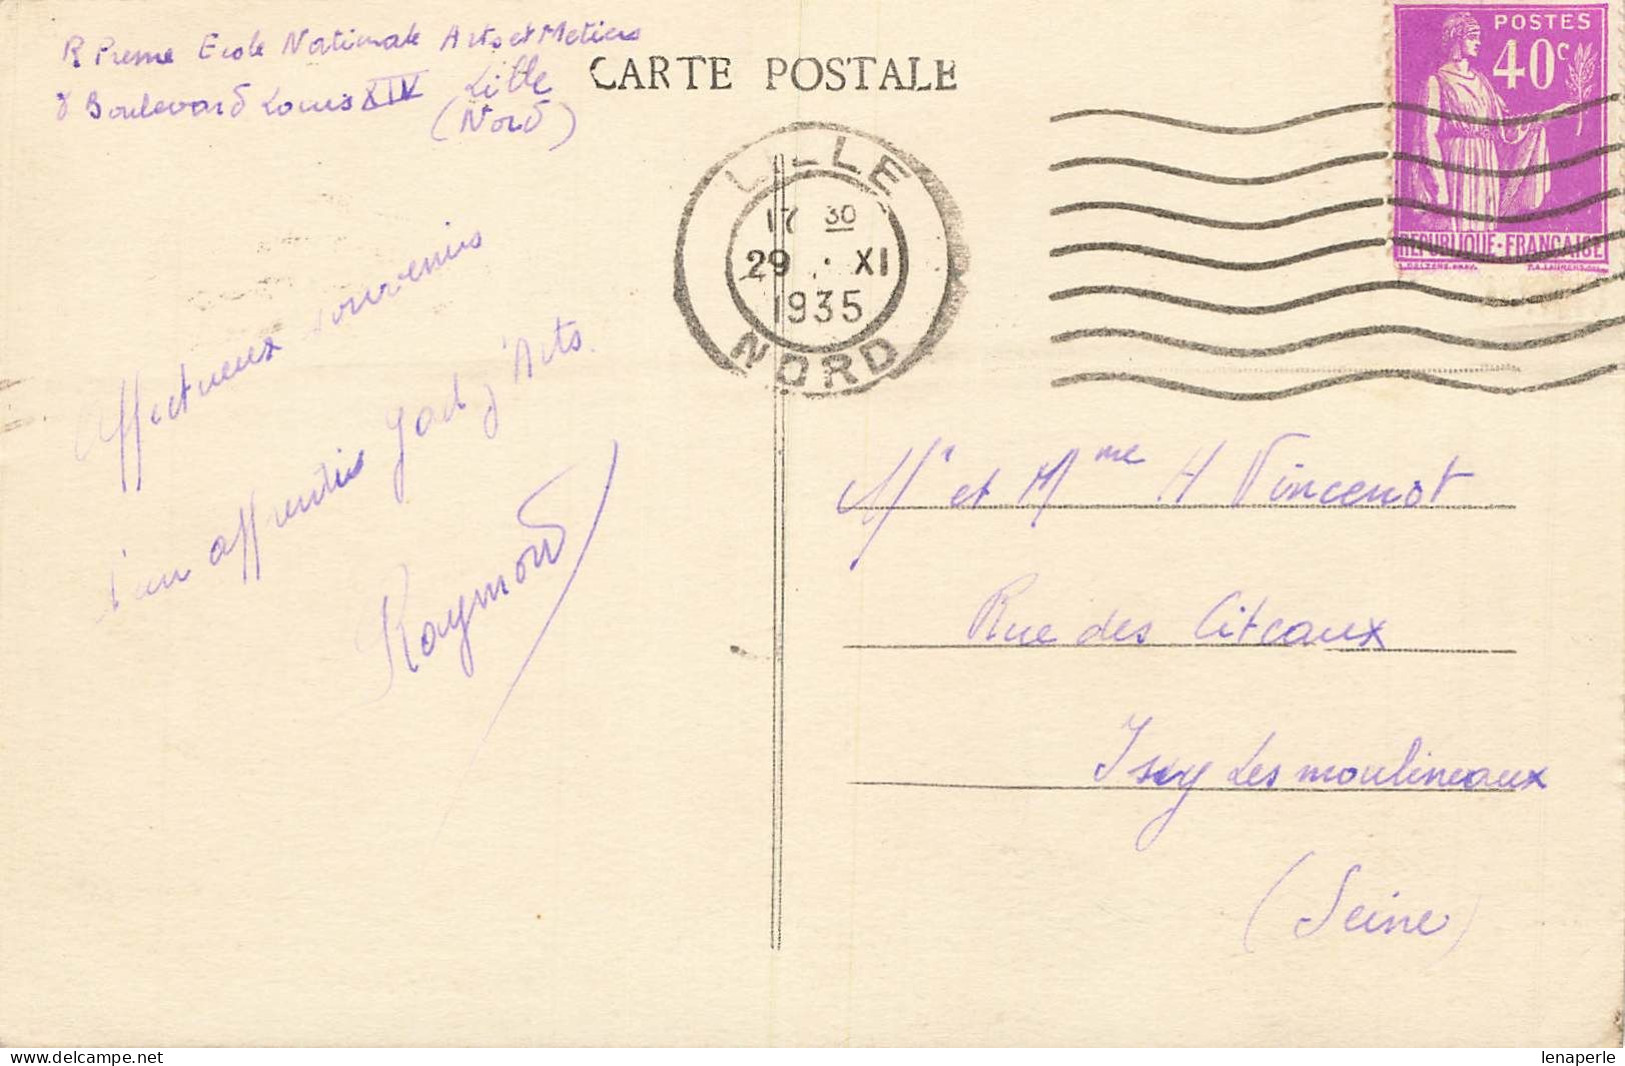 R Preme Ecole Nationale Arts et Metiers
8 Boulevard Louis XIV Lille
(Nord)
CARTE POSTALE
POSTES
40c
REPUBLIQUE·FRANCAISE
LILLE
17 30
29 · XI
1935
NORD
Affectueux souvenirs
d'un apprentis Gad z'Arts.
Raymond
Mr et Mme H Vincenot
Rue des Citeaux
Issy Les moulineaux
(Seine)
lenaperle
delcampe.net